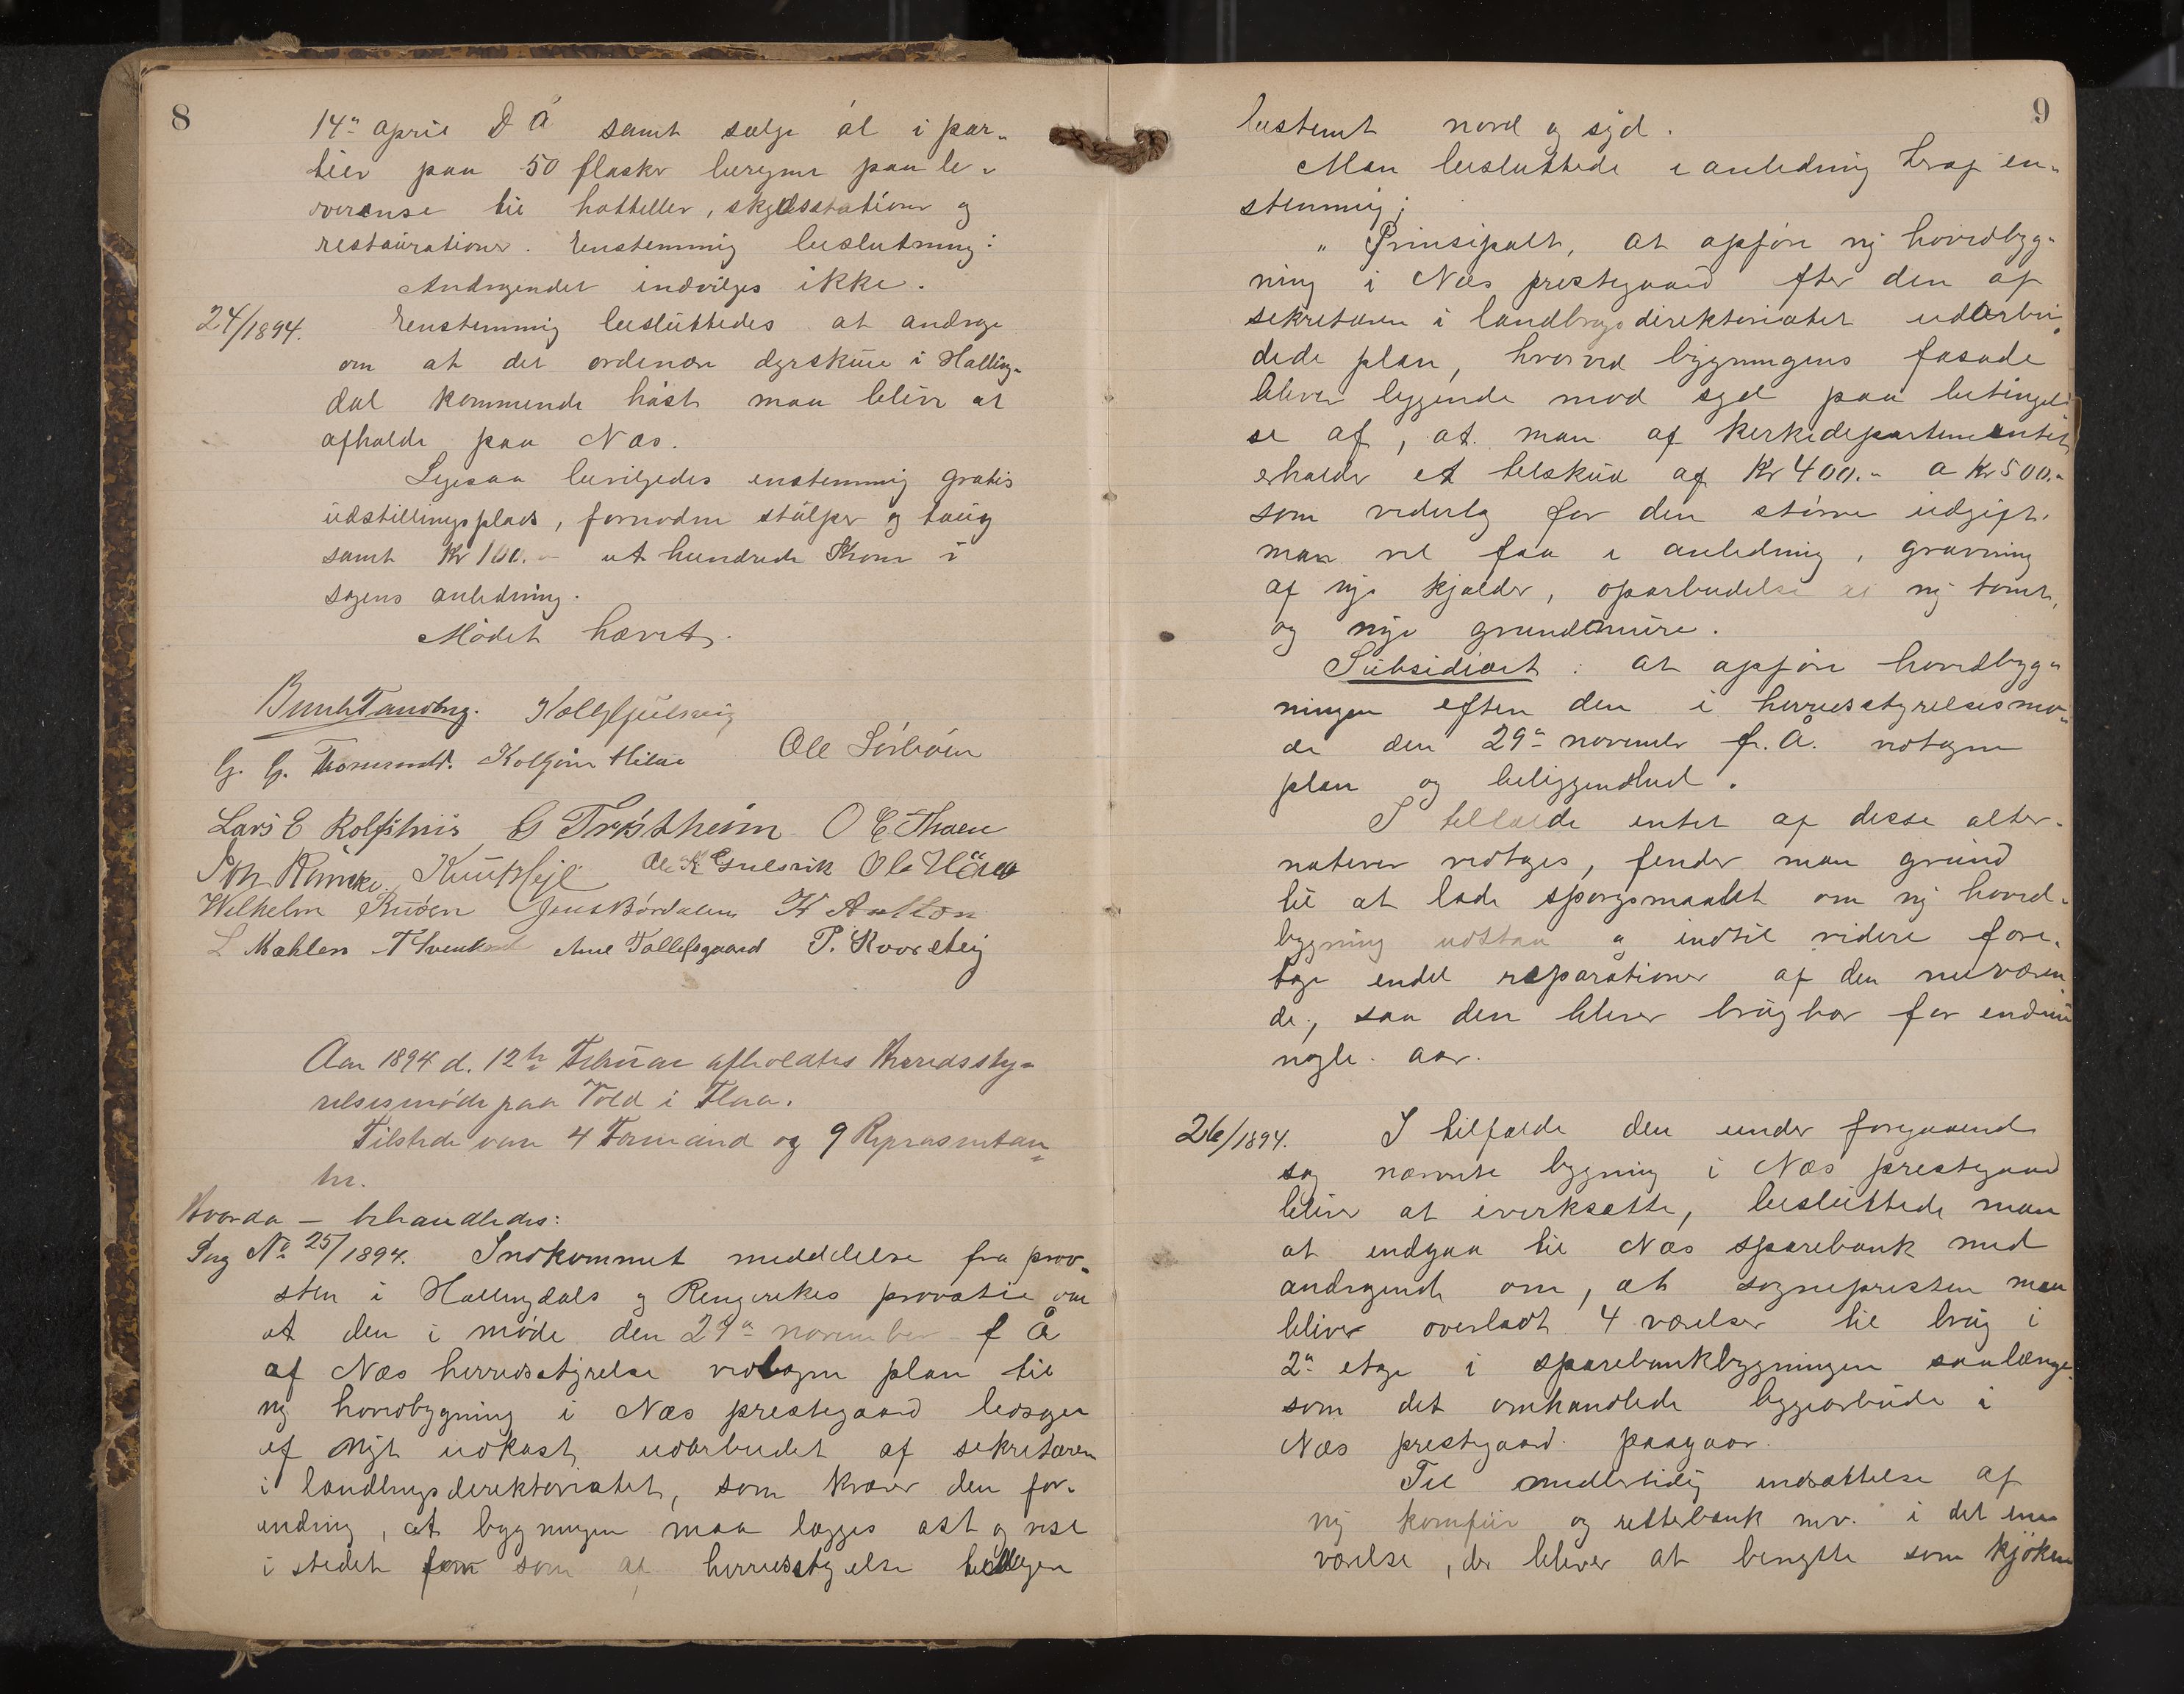 8
14de april D Å samt sælge øl i par-
tier paa 50 flasker beregne paa le-
verense til hotteller, skydsstationer og
restaurationer. Enstemmig beslutning:
Andragendet indvilges ikke.
24/1894. Enstemmig besluttedes at andrage
om at det ordenære dyrskue i Halling-
dal kommende høst maa blive at
afholde paa Næs.
Ligesaa bevilgedes enstemmig gratis
udstillingsplads, fornødne stolper og taug
samt Kr 100.- et hundrede Kroner i
sagens anledning.
Mødet hævet.
G. G.
Ole Sørbøen
Lars E Rolfshus G Trøstheim O E Thoen
Ole K Gulsvik
Wilhelm Ruøen Jens Bórdalen
L Mæhlen Arne Tollefsgaard P. Kvarsteig
Aar 1894 d. 12te Februar afholdtes Herredssty-
relsesmøde paa Told i Flaa.
Tilstede vare 4 Formænd og 9 Repræsentan
ter.
Hvorda — behandledes:
Sag No 25/1894. Indkommet meddelelse fra prov-
sten i Hallingdals og Ringerikes provsti om
at den i møde den 29de november f Å
af Næs herredsstyrelse vedtagne plan til
ny hovedbygning i Næs prestegaard ledsaget
af nyt udkast udarbeidet af sekretæren
i landbrugsdirektoriatet, som kræver den for-
andring, at bygningen maa lægges øst og vest
i stedet for som af herredsstyrelse
9
bestemt nord og syd.
Man besluttede i anledning heraf en-
stemmig;
" Prinsipalt, at opføre ny hovedbyg-
ning i Næs prestegaard efter den af
sekretæren i landbrugsdirektoriatet udarbei
dede plan, hvorved bygningens fasade
bliver liggende mod syd paa betingel-
se af, at man af kirkedepartementet
erholder et tilskud af Kr 400.- a Kr 500.-
som vederlag for den større udgift.
man vil faa i anledning, gravning
af nye kjelder, oparbeidelse af ny tomt,
og nye grundmure.
Subsidiært: at opføre hovedbyg-
ningen efter den i herredsstyrelsesmø-
de den 29de november f. Å. vedtagne
plan og beliggenhed.
I tilfælde intet af disse alter-
nativer vedtages, finder man grund
til at lade spørgsmaalet om ny hoved-
bygning udstaa og indtil videre fore-
tage endel reparationer af den nuværen
de, saa den bliver brugbar for endnu
nogle aar.
26/1894. I tilfælde den under foregaaende
sag nævnte bygning i Næs prestegaard
bliver at iverksætte, besluttede man
at indgaa til Næs sparebank med
andragende om, at sognepresten maa
blive overladt 4 værelser til brug i
2den etage i sparebankbygningen saalænge
som det omhandlede byggearbeide i
Næs prestegaard paagaar.
Til midlertidig indsættelse af
ny komfur og retterbænk mv. i det ene
værelse, der bliver at benytte som kjøken